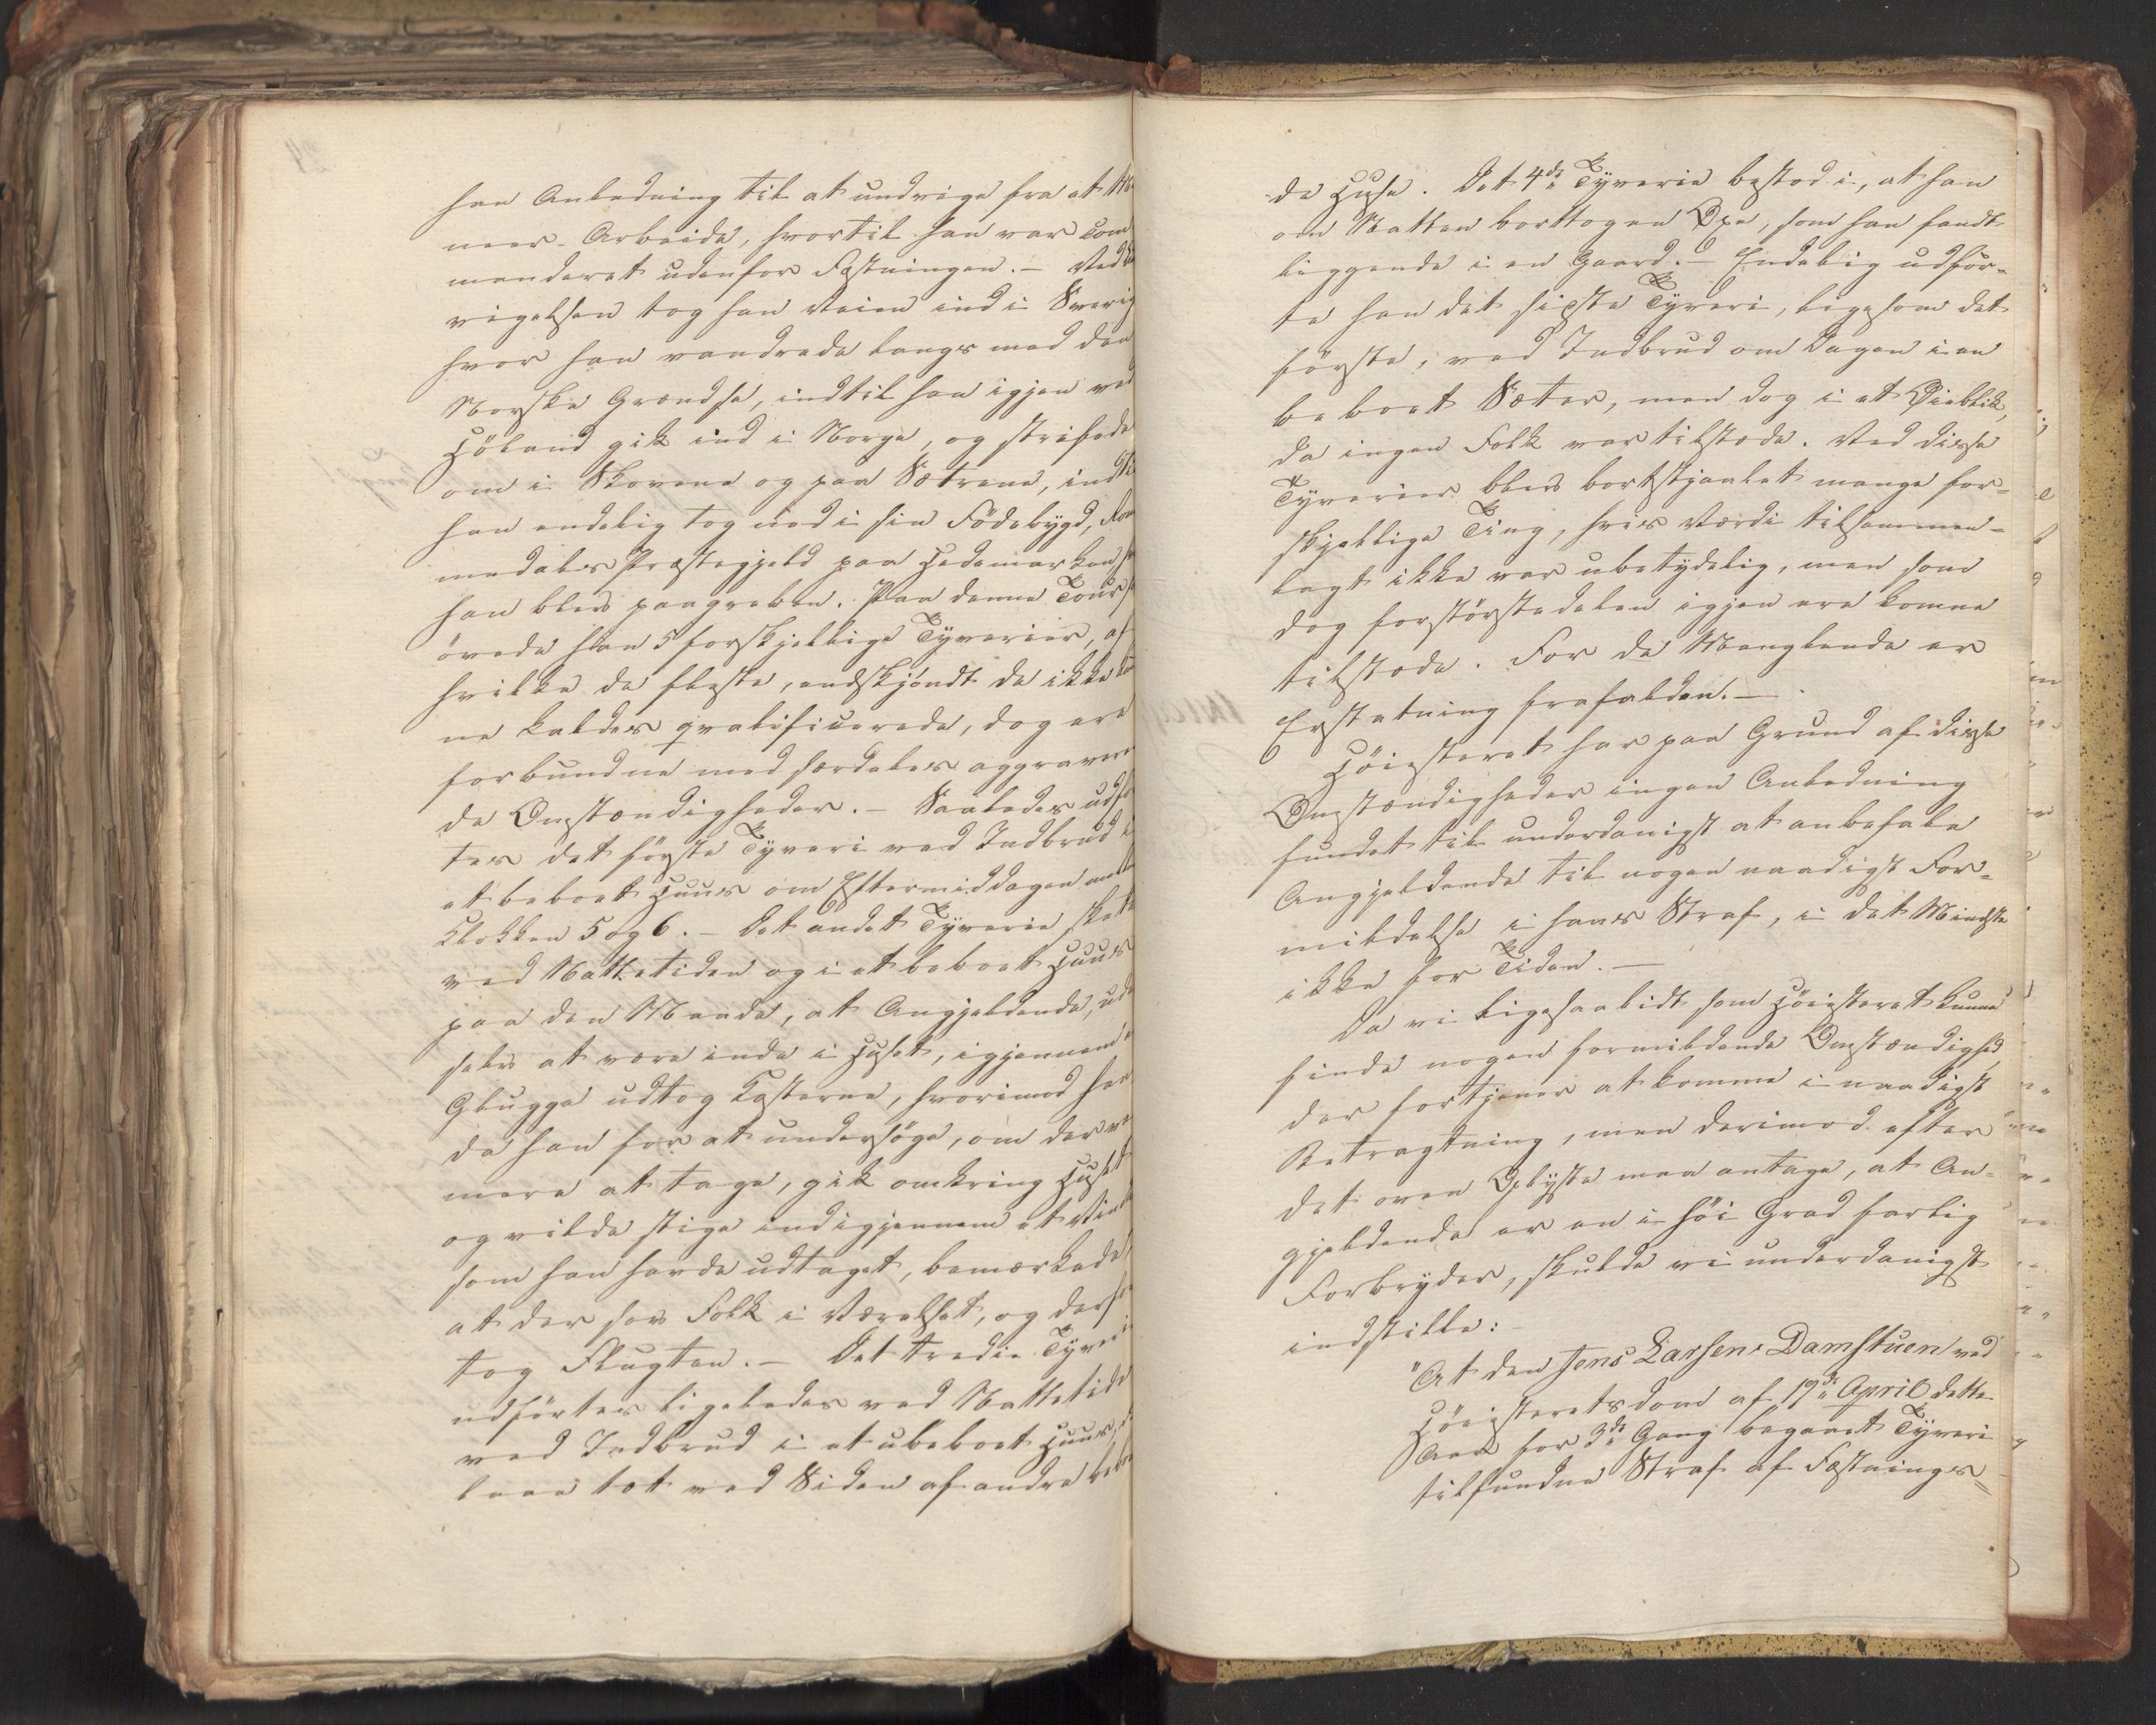 han Anledning til at undvige fra et
neer-Arbeide, hvortil han var com
manderet udenfor Fæstningen. – Ved
vigelsen tog han Veien ind i Sverig
hvor han vandrede langs med den
Norske Grændse, indtil han igjen ved
Höland gik ind i Norge, og streifede
om i Skovene og paa Sætrene, indti
han endelig tog ned i sin Födebygd, Rom
medals Præstegjeld paa Hedemarken
han blev paagreben. Paa denne Tour
övede han 5 forskjellige Tyverier, af
hvilke de fleste, endskjöndt de ikke
ne kaldes qvalificerede, dog ere
forbundne med særdeles aggravere
de Omstændigheder. – Saaledes udför
tes det förste Tyveri ved Indbrud i
et beboet Huus om Eftermiddagen mell
Klokken 5 og 6. – Det andet Tyverie skete
ved Nattetiden og i et beboet Huus
paa den Maade, at Angjeldende, ud
selv at være inde i Huset, igjennem
Glugge udtog Kosterne, hvorimod han
da han for at undersöge, om der va
mere at tage, gik omkring Huset
og vilde stige ind igjennem et Vind
som han havde udtaget, bemærkede
at der sov Folk i Værelset, og der
tog Flugten. – Det tredie Tyveri
udförtes ligeledes ved Nattetide
ved Indbrud i et ubeboet Huus, de
laae tæt ved Siden af andre bebo
24
de Huse. Det 4de Tyverie bestod i, at han
om Natten borttog en Öxe, som han fandt
liggende i en Gaard. – Endelig udför-
te han det sidste Tyveri, ligesom det
förste, ved Indbrud om Dagen i en
beboet Sæter, men dog i et Öieblik,
da ingen Folk var tilstede. Ved disse
Tyverier blev bortstjaalet mange for-
skjellige Ting, hvis Værdi tilsammen-
lagt ikke var ubetydelig, men som
dog forstörstedelen igjen ere komne
tilstede. For de Manglende er
Erstatning frafalden. –
Höiesteret har paa Grund af disse
Omstændigheder ingen Anledning
fundet til underdanigst at anbefale
Angjeldende til nogen naadigst For-
mildelse i hans Straf, i det Mindste
ikke for Tiden. –
Da vi ligesaalidt som Höiesteret kunne
finde nogen formildende Omstændighed,
der fortjener at komme i naadigst
Betragtning, men derimod efter
det oven Oplyste maa antage, at An-
gjeldende er en i höi Grad farlig
Forbryder, skulde vi underdanigst
indstille: –
"At den Jens Larsen Damstuen ved
Höiesteretsdom af 19de April dette
Aar for 3de Gang begaaet Tyveri
tilfundne Straf af Fæstnings-